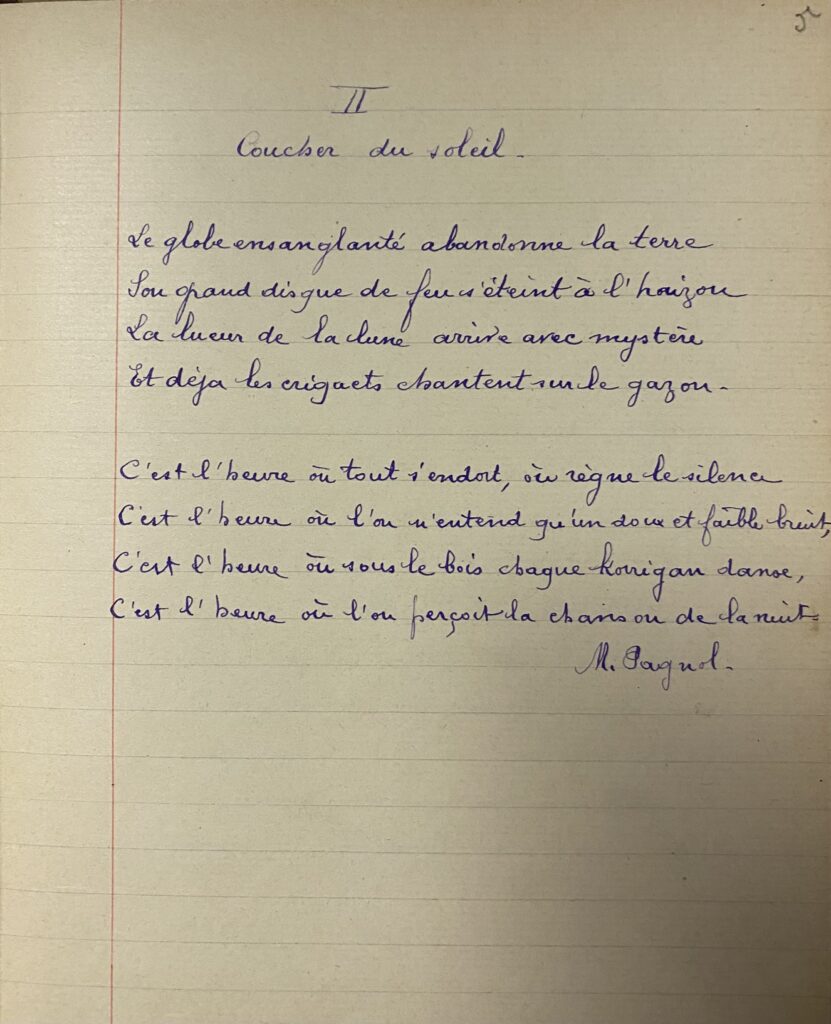 5
II
Coucher du soleil.
Le globe ensanglanté abandonne la terre
Son grand disque de feu s'éteint à l'hoizon
La lueur de la lune arrive avec mystère
Et déja les criquets chantent sur le gazon.
C'est l'heure où tout s'endort, où règne le silence
C'est l'heure où l'on n'entend qu'un doux et faible bruit,
C'est l'heure où sous le bois chaque Korrigan danse,
C'est l'heure où l'on perçoit la chanson de la nuit.
M. Pagnol.